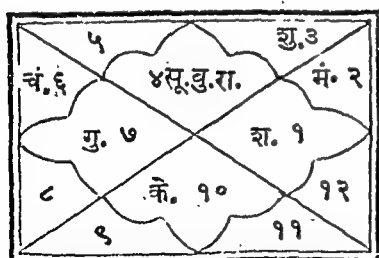 ५ शु. ३
चं. ६ ४सू.वु.रा. मं. २
गु. ७ श. १
८ के. १० १२
९ ११